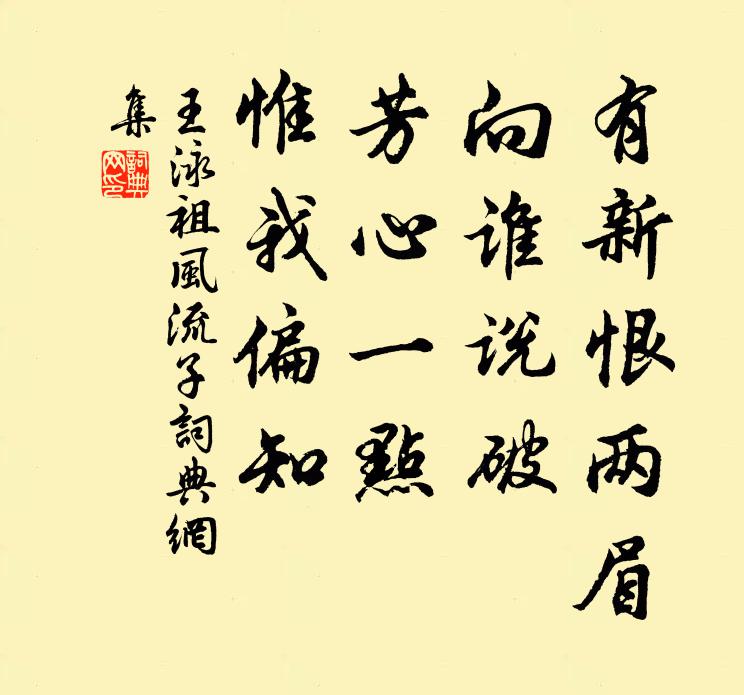 有新恨两眉
向谁说破
芳心一點
惟我偏知
王泳祖風流子詞典網
集
詞典
网印